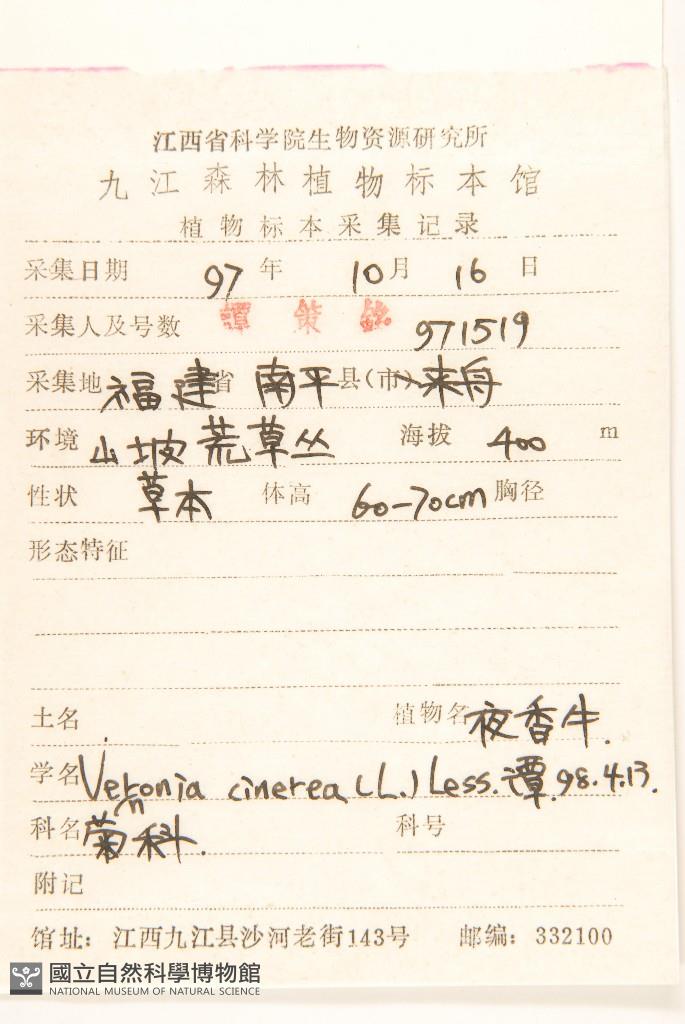 江西省科学院生物资源研究所
九江森林植物标本馆
植物标本采集记录
采集日期 97 年 10 月 16 日
采集人及号数 譚策铭 971519
采集地 福建 省 南平 县(市) 来舟
环境 山坡荒草丛 海拔 400 m
性状 草本 体高 60-70cm 胸径
形态特征
土名 植物名 夜香牛.
学名 Vernonia cinerea (L.) Less. 谭. 98.4.13.
科名 菊科. 科号
附记
馆址：江西九江县沙河老街143号 邮编：332100
國立自然科學博物館
NATIONAL MUSEUM OF NATURAL SCIENCE